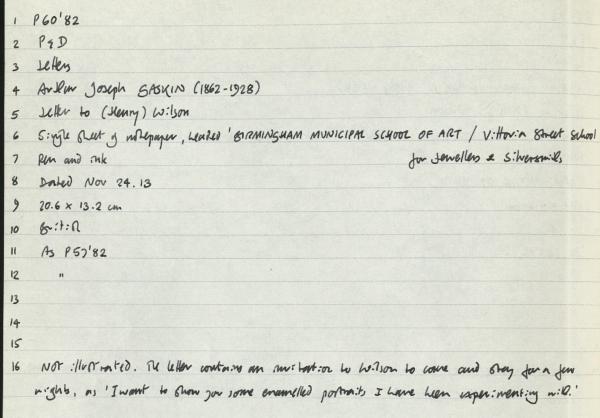 1 P60'82
2 P&D
3 Letters
4 Arthur Joseph GASKIN (1862-1928)
5 Letter to (Henry) Wilson
6 Single sheet of notepaper, headed 'BIRMINGHAM MUNICIPAL SCHOOL OF ART / Vittoria Street School
for Jewellers & Silversmiths
7 Pen and ink
8 Dated Nov 24.13
9 20.6 x 13.2 cm
10 British
11 As P57'82
12 "
13
14
15
16 Not illustrated. The letter contains an invitation to Wilson to come and stay for a few
nights, as 'I want to show you some enamelled portraits I have been experimenting with.'